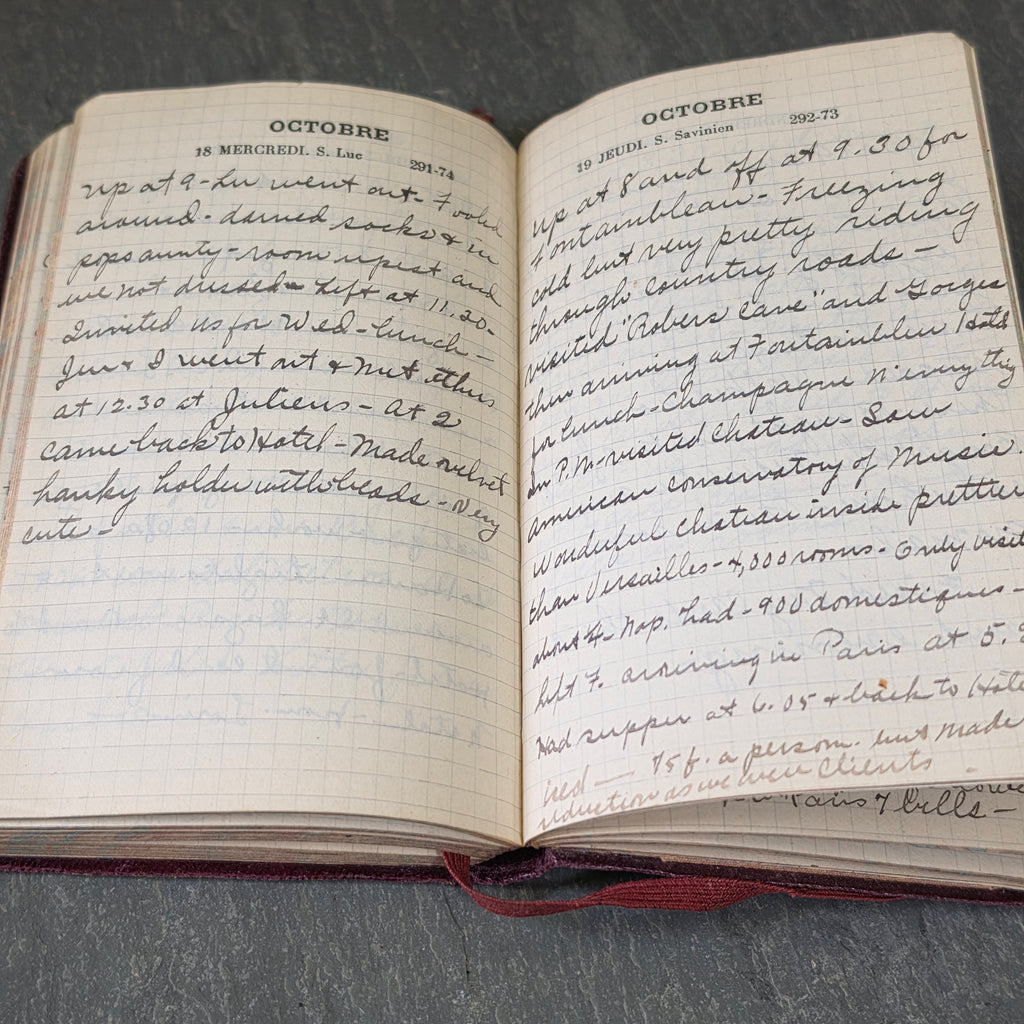 OCTOBRE
18 MERCREDI. S. Luc 291-74
up at 9 - Lu went out - Fooled
around - darned socks & in
pops aunty - room upset and
we not dressed - Left at 11.30 -
Invited us for Wed - lunch -
& I went out & met
at 12.30 at Juliens - at 2
came back to Hotel - Made velvet
hanky holder with beads - Very
cute -
OCTOBRE
19 JEUDI. S. Savinien 292-73
up at 8 and off at 9.30 for
Fontainbleau - Freezing
cold but very pretty riding
through country roads -
visited "Robers Cave" and Gorges
then arriving at Fontainbleu Hotel
for lunch - Champagne n' everything
In P.M. - visited Chateau - Saw
American conservatory of Music.
Wonderful chateau inside prettier
than Versailles - 4,000 rooms - Only visit
about 4 - Nap. had - 900 domestiques -
left F. arriving in Paris at 5.
Had supper at 6.05 & back to Hotel
75 f. a person. but made
reduction as we were clients -
Paris 7 bills -